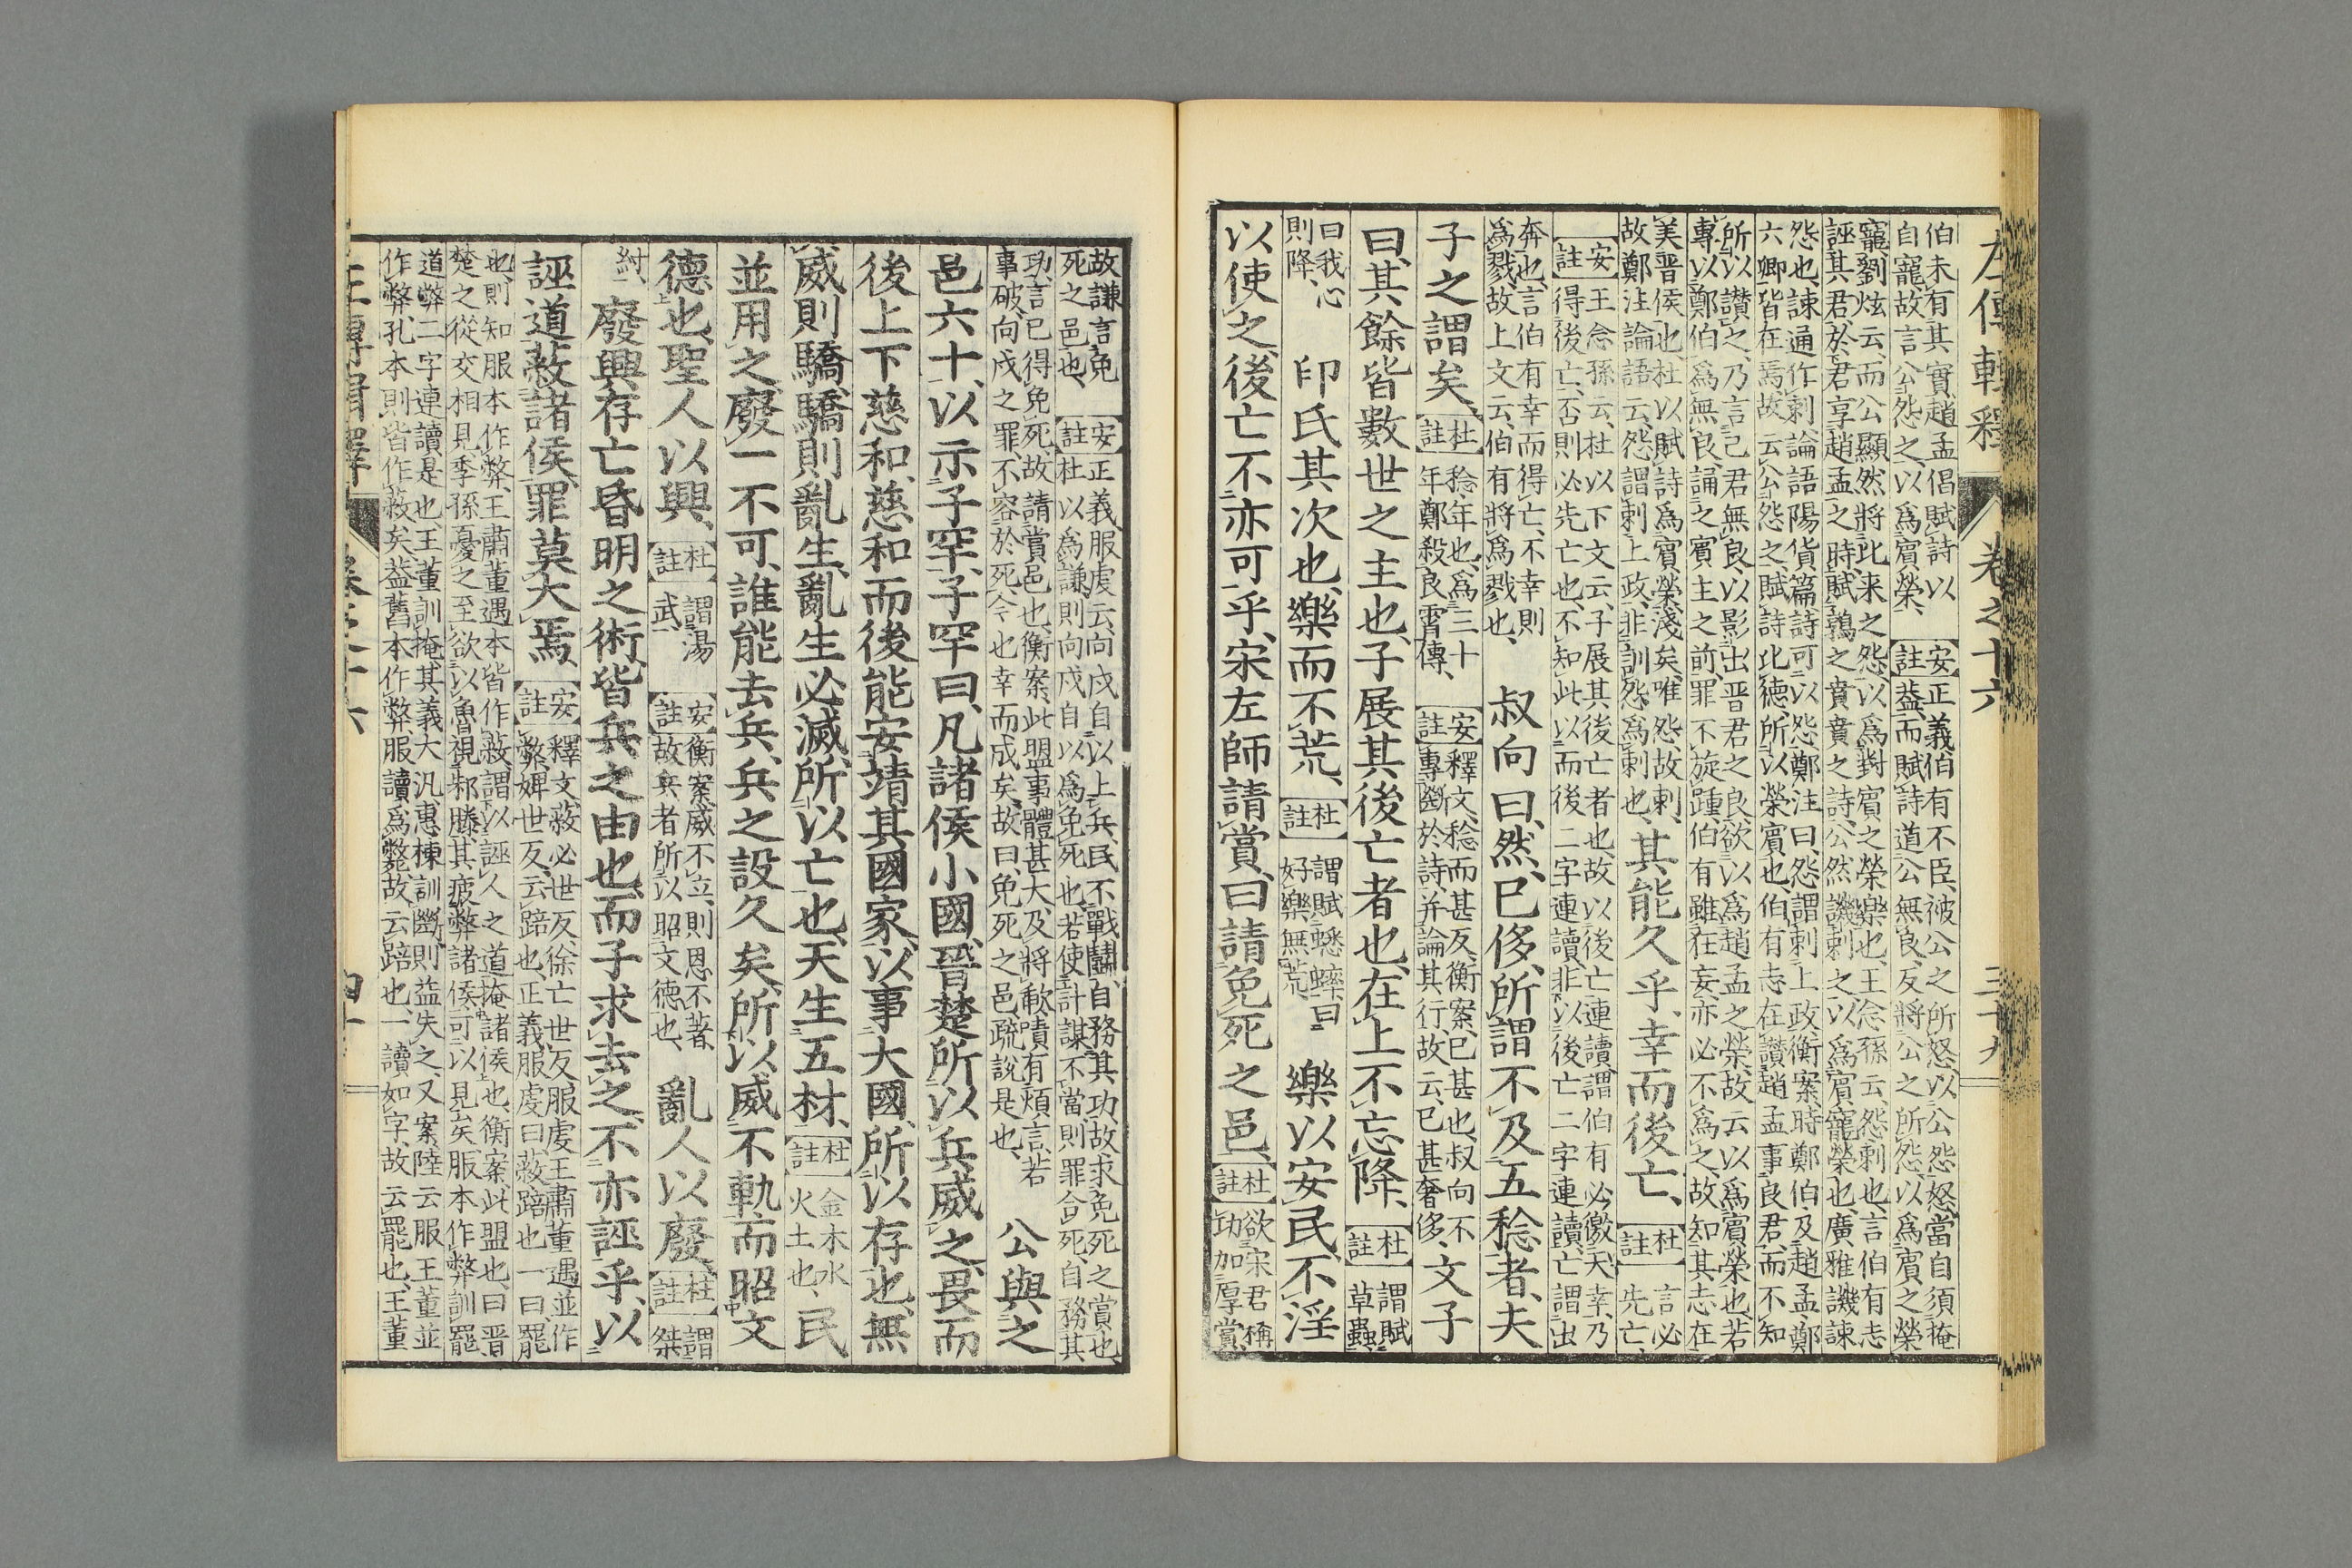 左傳輯釋 卷之十六 三十九
伯未有其實、趙孟倡賦詩以
自寵、故言公怨之、以爲賓榮、
安註
正義、伯有不臣、被公之所怒、以公怨怒、當自須掩
蓋、而賦詩道公無良、反將公之所怨、以爲賓之榮
寵、劉炫云、而公顯然將此來之怨、以爲對賓之榮樂也、王念孫云、怨刺也、言伯有志
誣其君、於君享趙孟之時、賦鶉之賁賁之詩、公然譏刺之、以爲賓寵榮也、廣雅譏諫
怨也、諫通作刺、論語陽貨篇、詩可以怨、鄭注曰、怨謂刺上政、衡案、時鄭伯及趙孟、鄭
六卿皆在焉、故云公怨之、賦詩比德、所以榮賓也、伯有志在讃趙孟事良君、而不知
所以讃之、乃言己君無良、以影出晋君之良、欲以爲趙孟之榮、故云以爲賓榮也、若
專以鄭伯爲無良、誦之賓主之前、罪不旋踵、伯有雖在妄、亦必不爲之、故知其志在
美晋侯也、杜以賦詩爲賓榮、淺矣、唯怨故刺、
故鄭注論語云、怨謂刺上政、非訓怨爲刺也、
其能久乎、幸而後亡、
杜註
言必
先亡、
安註
王念孫云、杜以下文云、子展其後亡者也、故以後亡連讀、謂伯有必徼天幸、乃
得後亡、否則必先亡也、不知此以而後二字連讀、非以後亡二字連讀、亡謂出
奔也、言伯有幸而得亡、不幸則
爲戮、故上文云、伯有將爲戮也、
叔向曰、然、已侈、所謂不及五稔者、夫
子之謂矣、
杜註
稔、年也、爲三十
年鄭殺良霄傳、
安註
釋文、稔而甚反、衡案、已甚也、叔向不
專斷於詩、并論其行、故云、已甚奢侈、
文子
曰、其餘皆數世之主也、子展其後亡者也、在上不忘降、
杜註
謂賦
草蟲
曰、我心
則降、
印氏其次也、樂而不荒、
杜註
謂賦蟋蟀曰
好樂無荒、
樂以安民、不淫
以使之、後亡、不亦可乎、宋左師請賞、曰、請免死之邑、
杜註
欲宋君稱
功加厚賞、
故謙言免
死之邑也、
安註
正義、服虔云、向戌自以上兵、民不戰鬬、自務其功、故求免死之賞也、
杜以爲謙、則向戌自以爲免死也、若使計謀不當、則罪合死、自務其
功、言已得免死、故請賞邑也、衡案、此盟事體甚大、及將歃、嘖有煩言、若
事破、向戌之罪、不容於死、今也幸而成矣、故曰、免死之邑、疏說是也、
公與之
邑六十、以示子罕、子罕曰、凡諸侯小國、晉楚所以兵威之、畏而
後上下慈和、慈和而後能安靖其國家、以事大國、所以存也、無
威則驕、驕則亂生、亂生必滅、所以亡也、天生五材、
杜註
金木水
火土也、
民
並用之、廢一不可、誰能去兵、兵之設久矣、所以威不軌、而昭文
德也、聖人以興、
杜註
謂湯
武、
安註
衡案、威不立、則恩不著、
故兵者所以昭文德也、
亂人以廢、
杜註
謂桀
紂、
廢興存亡昏明之術、皆兵之由也、而子求去之、不亦誣乎、以
誣道蔽諸侯、罪莫大焉、
安註
釋文、蔽必世反、徐亡世反、服虔王肅董遇並作
弊、婢世反、云、踣也、正義、服虔曰、蔽踣也、一曰、罷
也、則知服本作弊、王肅董遇本皆作蔽、謂以誣人之道掩諸侯也、衡案、此盟也、曰晋
楚之從交相見、季孫憂之至、欲以魯視邾滕、其疲弊諸侯、可以見矣、服本作弊、訓罷
道弊二字連讀是也、王董訓掩、其義大汎、惠棟訓斷、則益失之、又案、陸云服王董並
作弊、孔本則皆作蔽矣、蓋舊本作弊、服讀爲斃、故云踣也、一讀如字、故云罷也、王董
左傳輯釋 卷之十六 四十